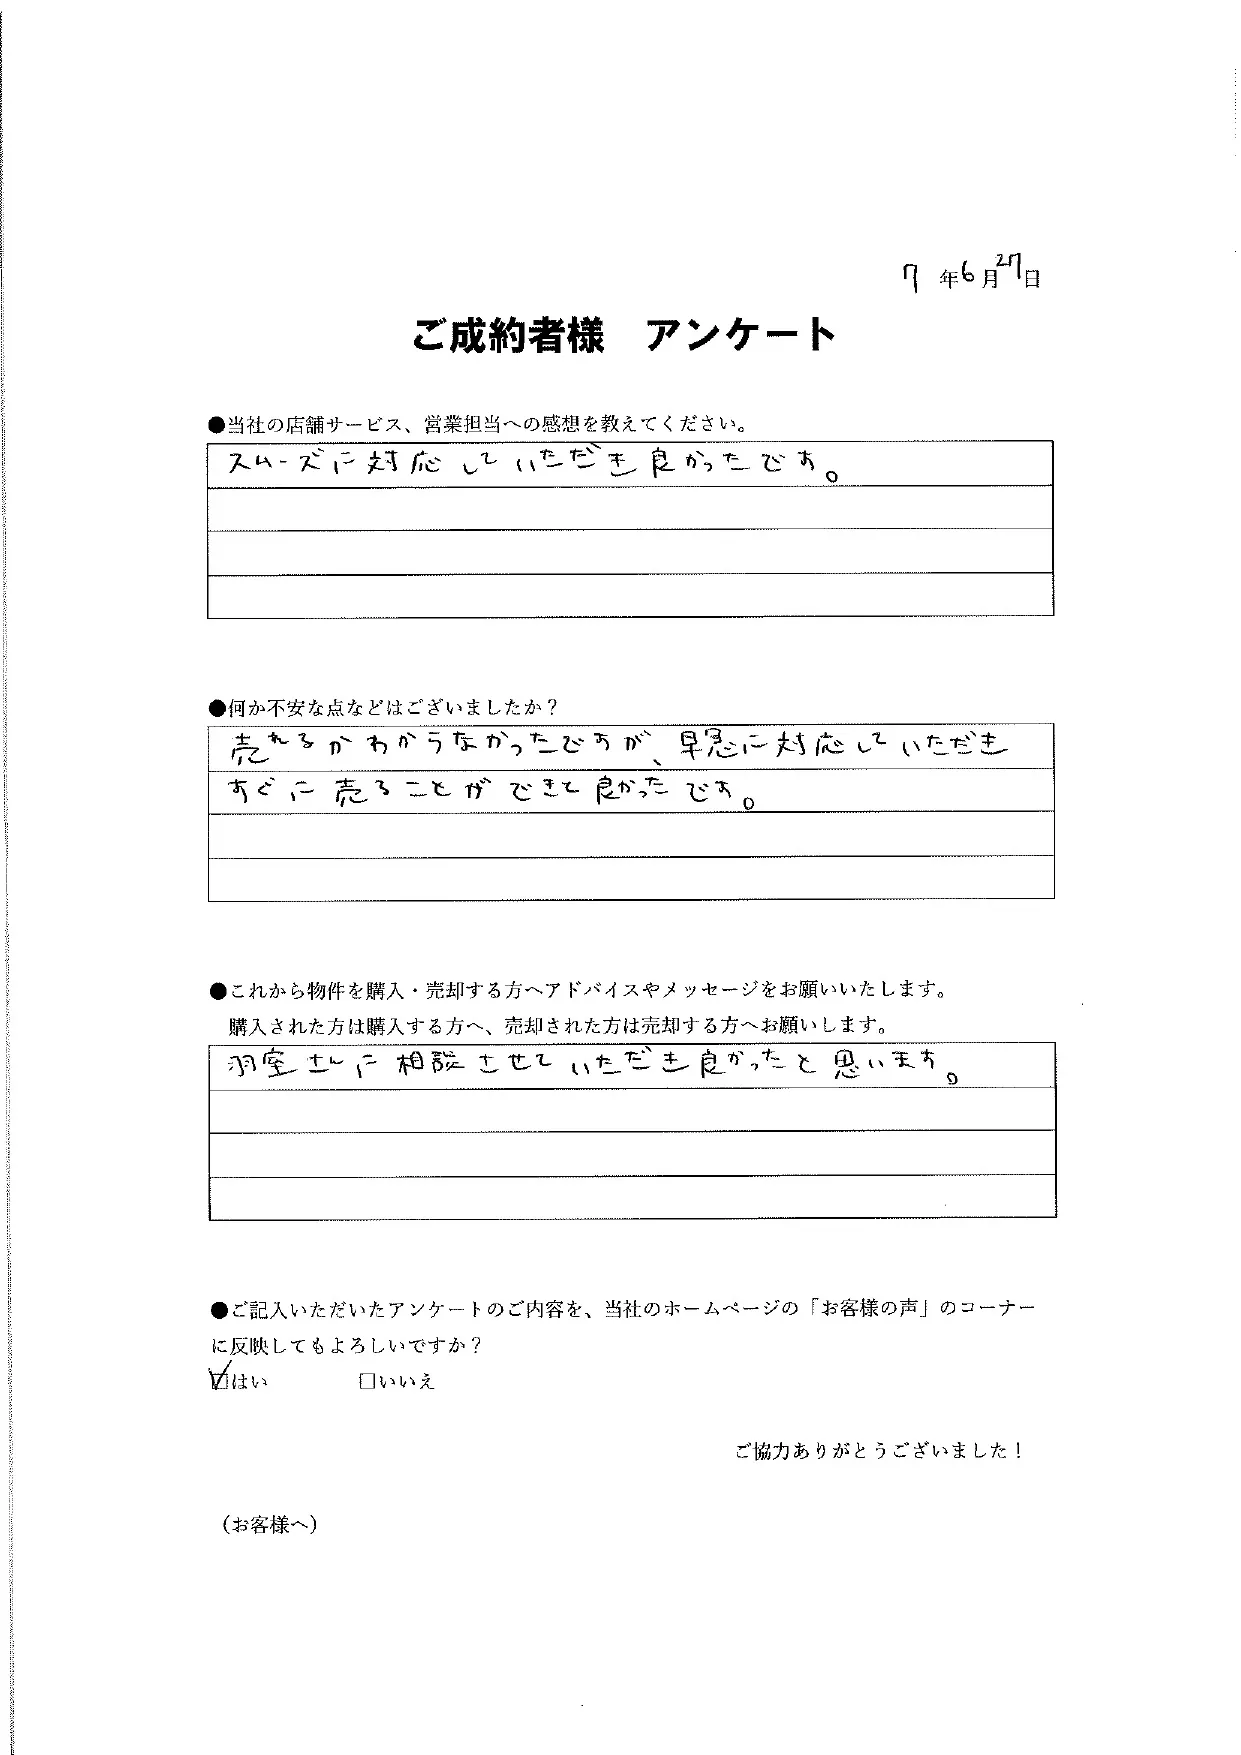 7年6月27日
ご成約者様 アンケート
●当社の店舗サービス、営業担当への感想を教えてください。
スムーズに対応していただき良かったです。
●何か不安な点などはございましたか？
売れるかわからなかったですが、早急に対応していただき
すぐに売ることができて良かったです。
●これから物件を購入・売却する方へアドバイスやメッセージをお願いいたします。
購入された方は購入する方へ、売却された方は売却する方へお願いします。
羽室さんに相談させていただき良かったと思います。
●ご記入いただいたアンケートのご内容を、当社のホームページの「お客様の声」のコーナー
に反映してもよろしいですか？
☑はい □いいえ
ご協力ありがとうございました！
（お客様へ）